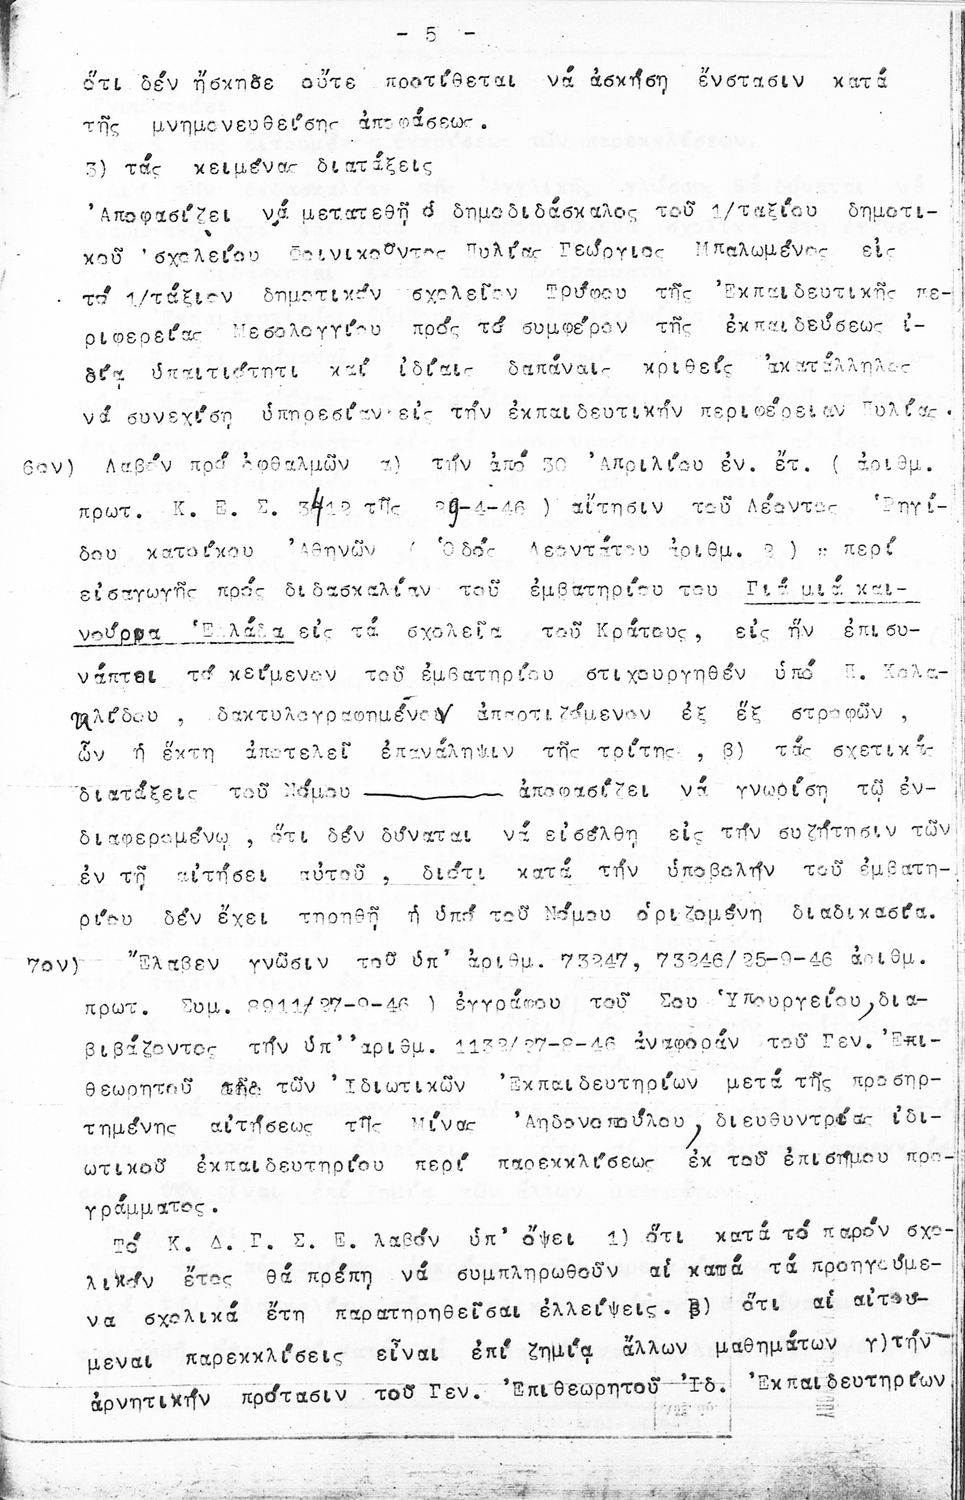 - 5 -
ὅτι δέν ἤσκησε οὔτε προτίθεται νά ἀσκήση ἔνστασιν κατά
τῆς μνημονευθείσης ἀποφάσεως.
3) τάς κειμένας διατάξεις
Ἀποφασίζει νά μετατεθῆ ὁ δημοδιδάσκαλος τοῦ 1/ταξίου δημοτι-
κοῦ σχολείου Φοινικοῦντος Πυλίας Γεώργιος Μπαλωμένος εἰς
τό 1/τάξιον δημοτικόν σχολεῖον Τρύφου τῆς Ἐκπαιδευτικῆς πε-
ριφερείας Μεσολογγίου πρός τό συμφέρον τῆς ἐκπαιδεύσεως ἰ-
δίᾳ ὑπαιτιότητι καί ἰδίαις δαπάναις κριθείς ἀκατάλληλος
νά συνεχίση ὑπηρεσίαν εἰς τήν ἐκπαιδευτικήν περιφέρειαν Πυλίας.
6ον) Λαβόν πρό ὀφθαλμῶν α) τήν ἀπό 30 Ἀπριλίου ἐν. ἔτ. ( ἀριθμ.
πρωτ. Κ. Ε. Σ. 3412 τῆς 29-4-46 ) αἴτησιν τοῦ Λέοντος Ῥηγί-
δου κατοίκου Ἀθηνῶν ( Ὁδός Λεοντάτου ἀριθμ. 2 ) περί
εἰσαγωγῆς πρός διδασκαλίαν τοῦ ἐμβατηρίου του Γιά μιά και-
νούργια Ἑλλάδα εἰς τά σχολεῖα τοῦ Κράτους, εἰς ἥν ἐπισυ-
νάπτει τό κείμενον τοῦ ἐμβατηρίου στιχουργηθέν ὑπό Π. Καλα-
ηλίδου , δακτυλογραφημένον ἀπαρτιζόμενον ἐξ ἕξ στροφῶν ,
ὧν ἡ ἕκτη ἀποτελεῖ ἐπανάληψιν τῆς τρίτης , β) τάς σχετικάς
διατάξεις τοῦ Νόμου ἀποφασίζει νά γνωρίση τῷ ἐν-
διαφερομένῳ , ὅτι δέν δύναται νά εἰσέλθη εἰς τήν συζήτησιν τῶν
ἐν τῇ αἰτήσει αὐτοῦ , διότι κατά τήν ὑποβολήν τοῦ ἐμβατη-
ρίου δέν ἔχει τηρηθῆ ἡ ὑπό τοῦ Νόμου ὁριζομένη διαδικασία.
7ον) Ἔλαβεν γνῶσιν τοῦ ὑπ' ἀριθμ. 73247, 73246/25-9-46 ἀριθμ.
πρωτ. Συμ. 8911/27-9-46 ) ἐγγράφου τοῦ Σου Ὑπουργείου, δια-
βιβάζοντος τήν ὑπ' ἀριθμ. 1132/27-8-46 ἀναφοράν τοῦ Γεν. Ἐπι-
θεωρητοῦ τῶν Ἰδιωτικῶν Ἐκπαιδευτηρίων μετά τῆς προσηρ-
τημένης αἰτήσεως τῆς Μίνας Ἀηδονοπούλου, διευθυντρίας ἰδι-
ωτικοῦ ἐκπαιδευτηρίου περί παρεκκλίσεως ἐκ τοῦ ἐπισήμου προ-
γράμματος.
Τό Κ. Δ. Γ. Σ. Ε. λαβόν ὑπ' ὄψει 1) ὅτι κατά τό παρόν σχο-
λικόν ἔτος θά πρέπη νά συμπληρωθοῦν αἱ κατά τά προηγούμε-
να σχολικά ἔτη παρατηρηθεῖσαι ἐλλείψεις. β) ὅτι αἱ αἰτού-
μεναι παρεκκλίσεις εἶναι ἐπί ζημίᾳ ἄλλων μαθημάτων γ)τήν
ἀρνητικήν πρότασιν τοῦ Γεν. Ἐπιθεωρητοῦ Ἰδ. Ἐκπαιδευτηρίων